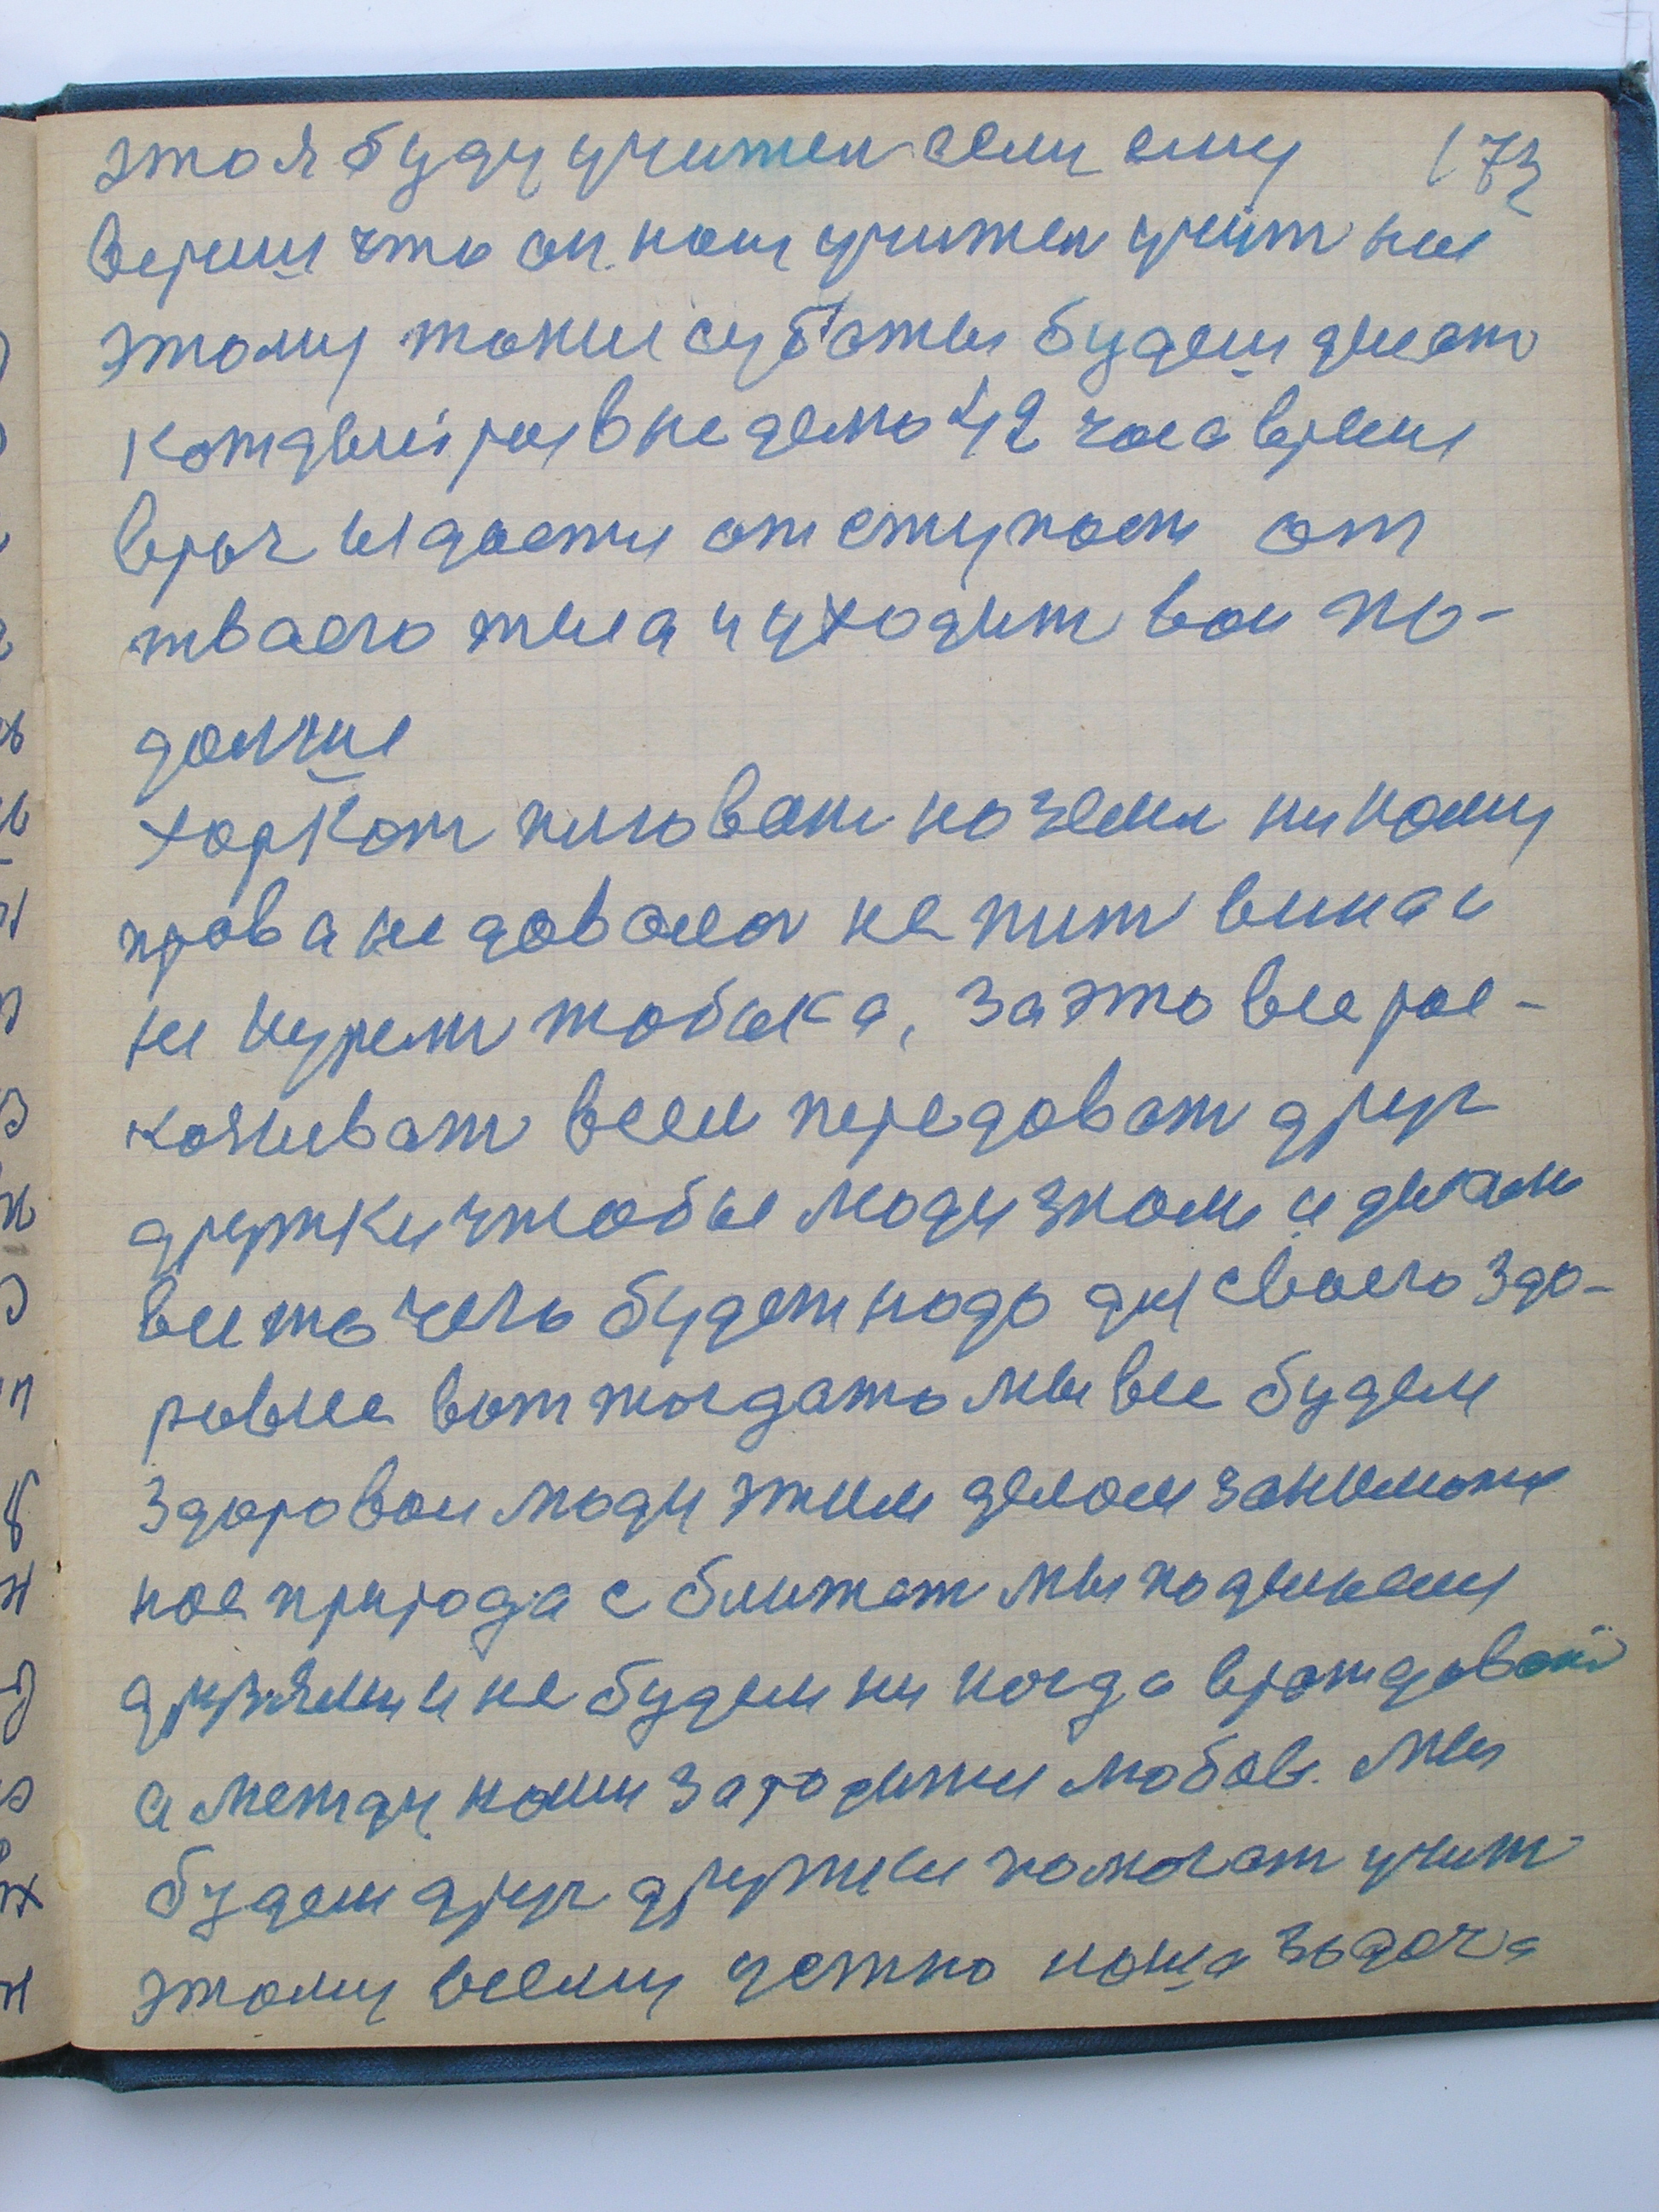 это я буду учител если ему 173
вериш что он наш учител учит нас
этому такие суботы будеш делат
каждый раз в неделю 42 часа время
враг и даети отступает от
тваего тела и уходит вон по-
далше
харкат плюват на землю никому
права не давалос не пит вина и
не курит табака, за это все рас-
казыват всем передават друг
дружки чтобы люди знали и делали
все то чего будет надо для своего здо-
ровия вот тогдато мы все будем
здоровои люди этим делом заниматся
нас природа сближат мы поделаемся
друзями и не будем никогда враждоват
а между нами зародитя любов. мы
будем друг дружки помогат учит
этому всему устно наша задача